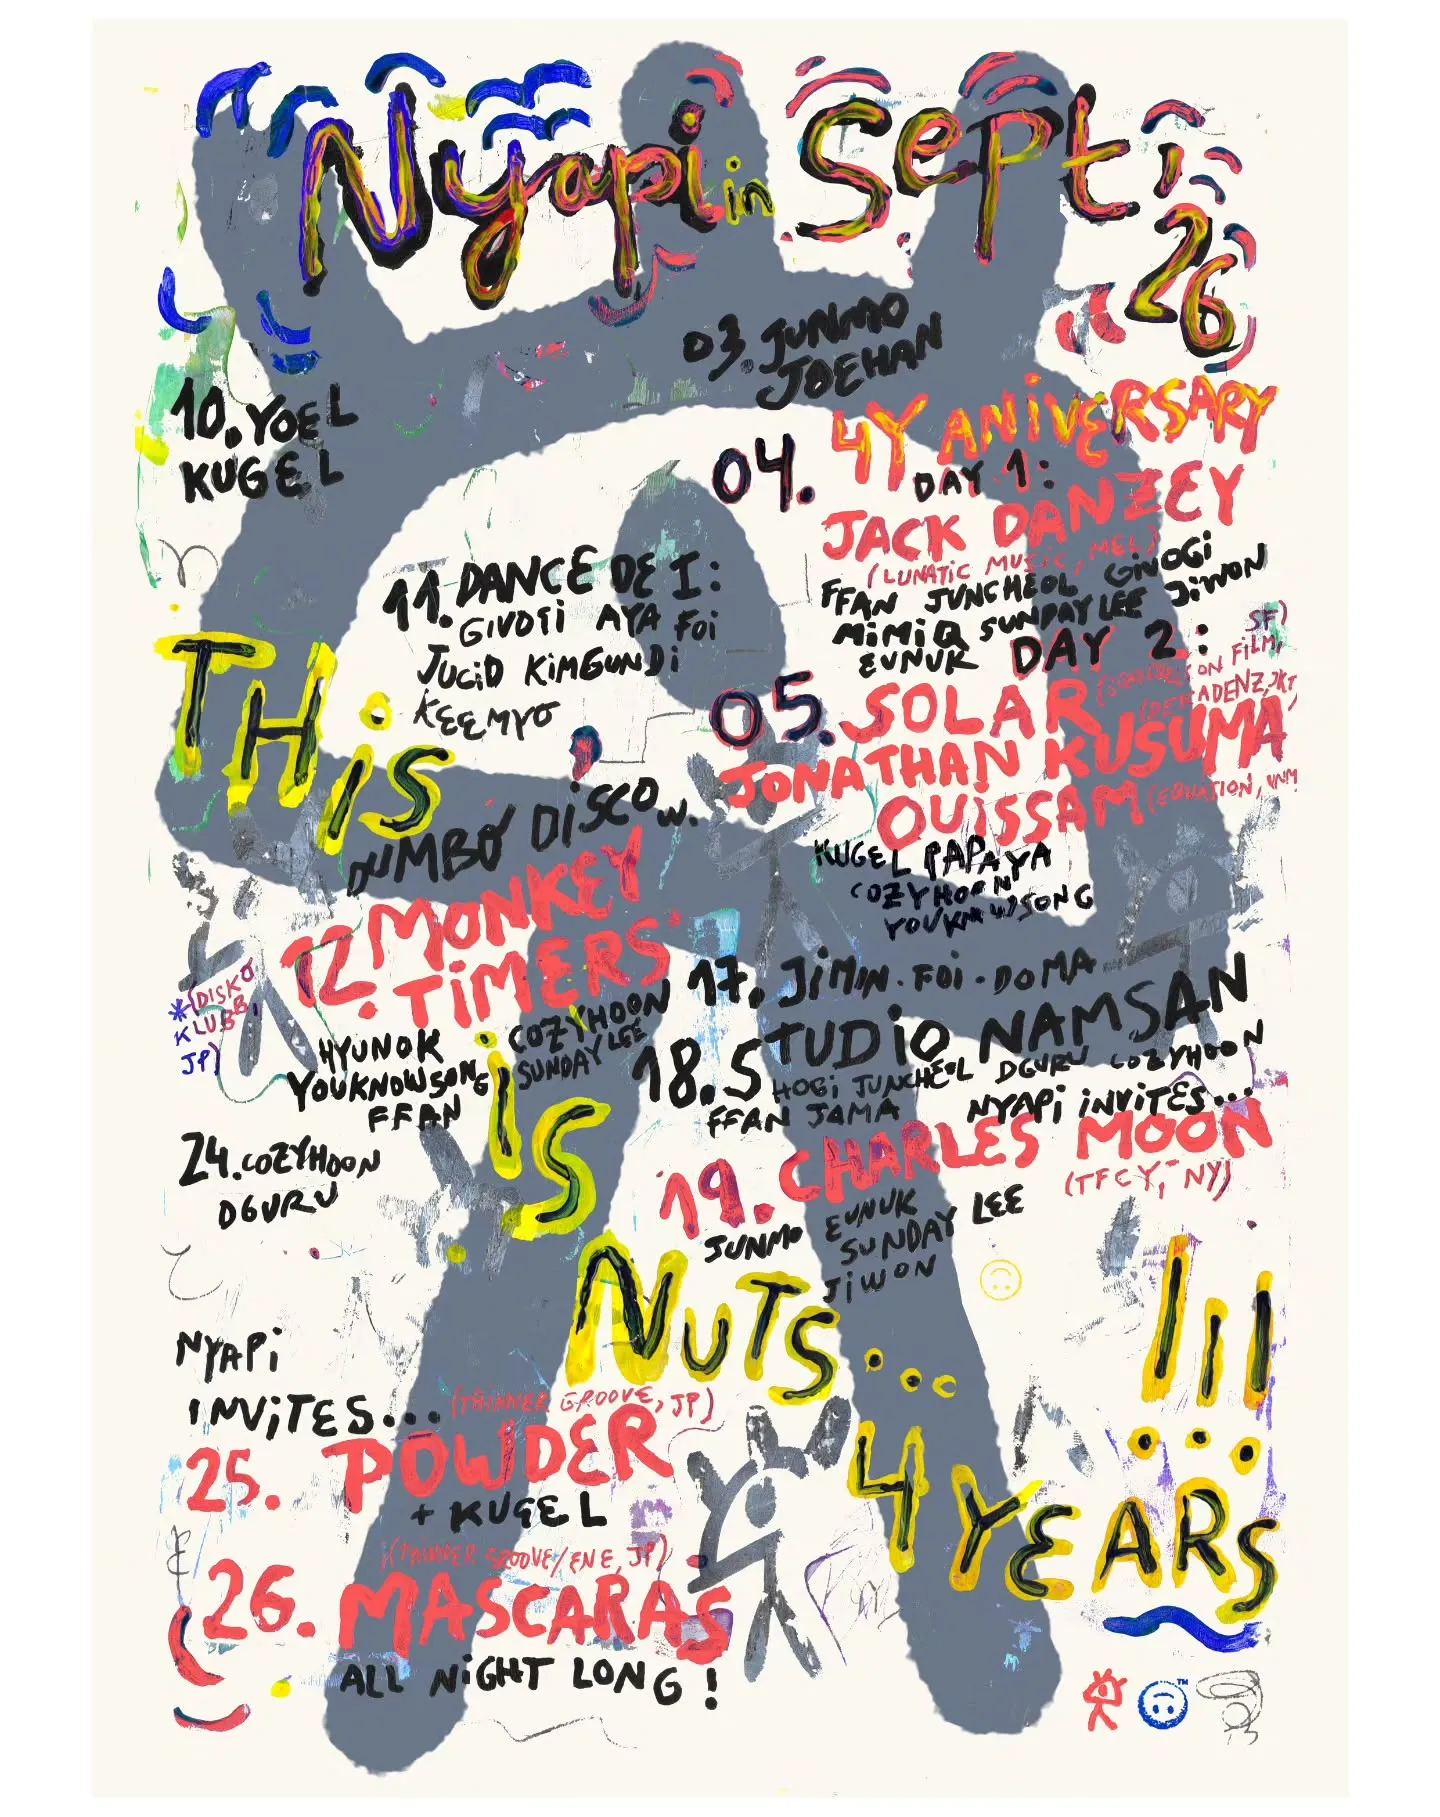 Nyapi in Sept
26
03. JUNMO
JOEHAN
10. YOEL
KUGEL
04. 4Y ANIVERSARY
DAY 1:
JACK DANZEY
(LUNATIC MUSIC, MEL)
FFAN JUNCHEOL GIVOGI
MIMIQ SUNDAY LEE JIWON
EUNUK
11. DANCE DE I:
GIVOTI AYA FOI
JUCID KIMGUNDI
KEEMYO
DAY 2:
05. SOLAR
ON FILM, SF)
JONATHAN KUSUMA
JKT
OUISSAM (EQUATION, VNM
KUGEL PAPAYA
COZYHOON
YOUKNOWSONG
THIS
DUMBO DISCO W.
12. MONKEY
TIMERS*
*(DISKO
KLUBB,
JP)
HYUNOK COZYHOON
YOUKNOWSONG SUNDAY LEE
FFAN
17. JIMIN. FOI. DOMA
18. STUDIO NAMSAN
HOGI JUNCHEOL DGURU COZYHOON
FFAN JAMA
IS
24. COZYHOON
DGURU
NYAPI INVITES...
19. CHARLES MOON
(TFCY, NY)
JUNMO EUNUK
SUNDAY LEE
JIWON
NUTS...!!!
NYAPI
INVITES...
(THINNER GROOVE, JP)
25. POWDER
+ KUGEL
(THINNER GROOVE/ENE, JP)
26. MASCARAS
ALL NIGHT LONG!
4 YEARS
TM